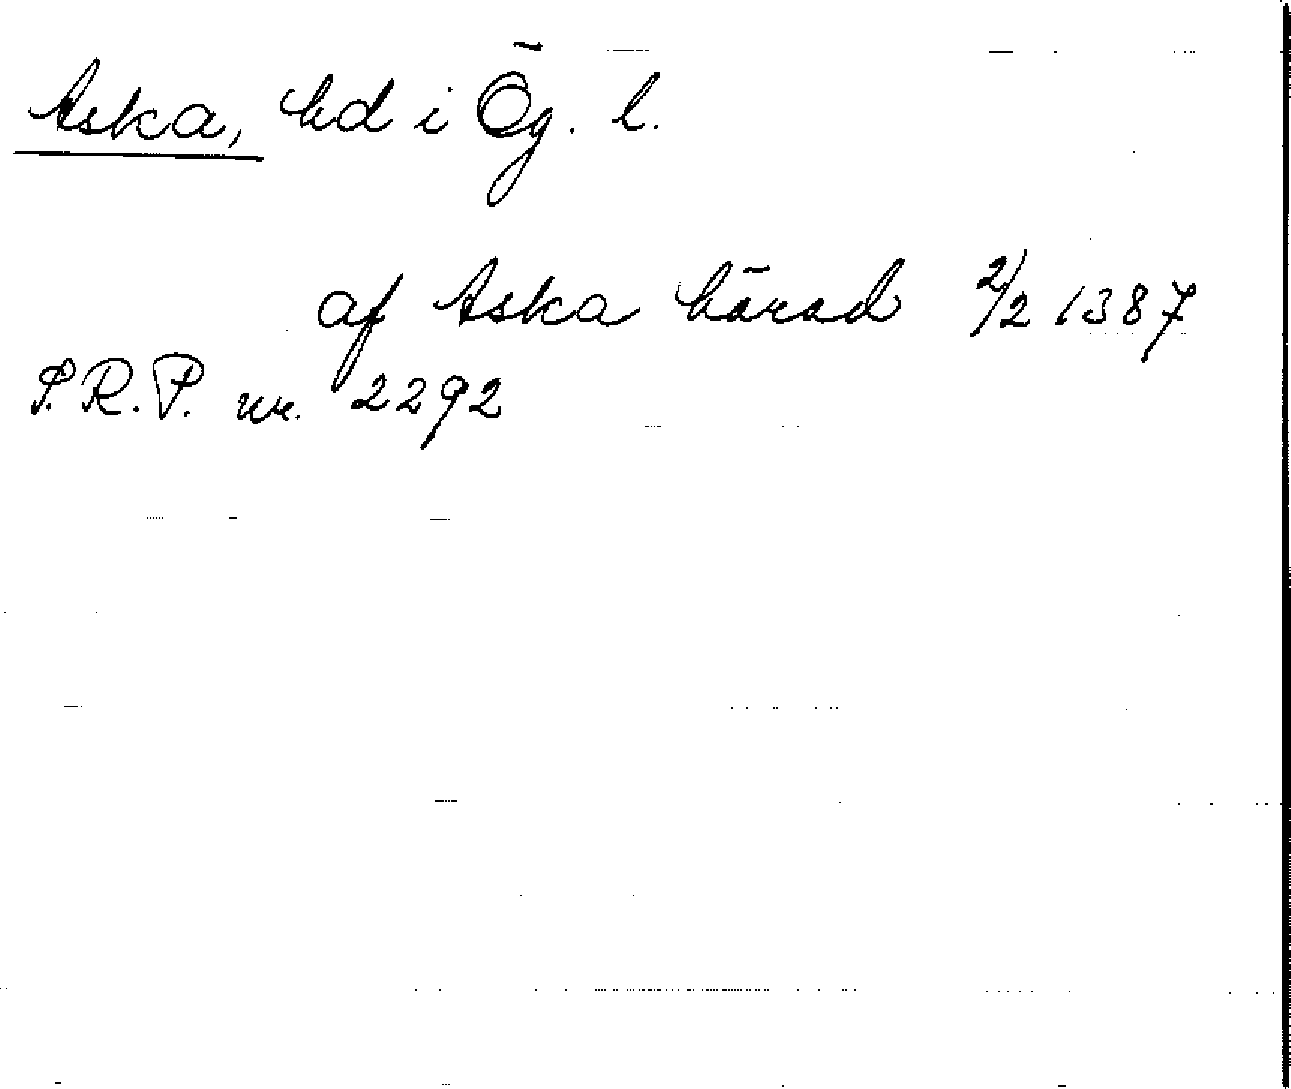 Aska, hd i Ög. l.
af Aska härad 2/2 1387
P.R.P. nr. 2292